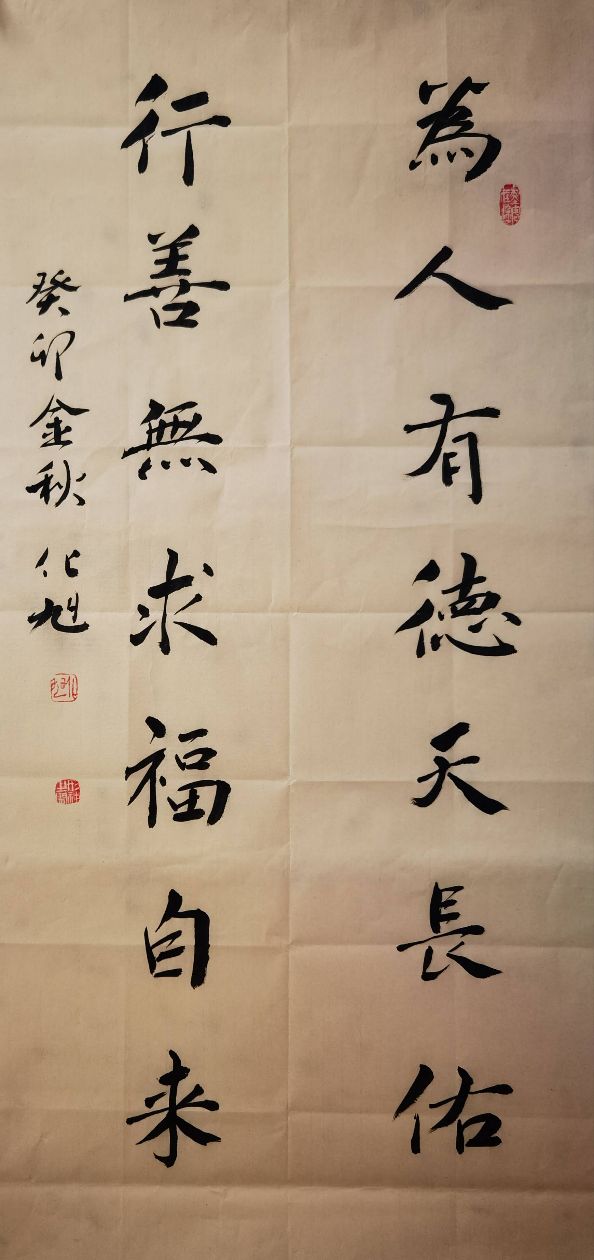 為人有德天長佑
行善無求福自来
癸卯金秋 化旭